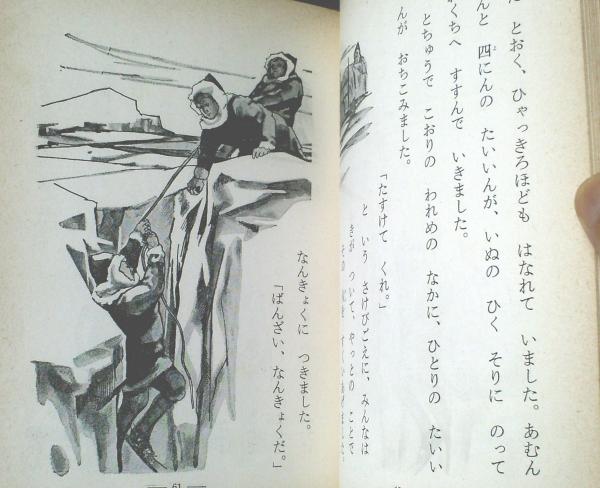 とおく、ひゃっきろほども はなれて いました。あむん
んと 四にんの たいいんが、いぬの ひく そりに のって
くちへ すすんで いきました。
とちゅうで こおりの われめの なかに、ひとりの たいい
んが おちこみました。
「たすけて くれ。」
と いう さけびごえに、みんなは
きが ついて、やっとの ことで、
なんきょくに つきました。
「ばんざい、なんきょくだ。」
61